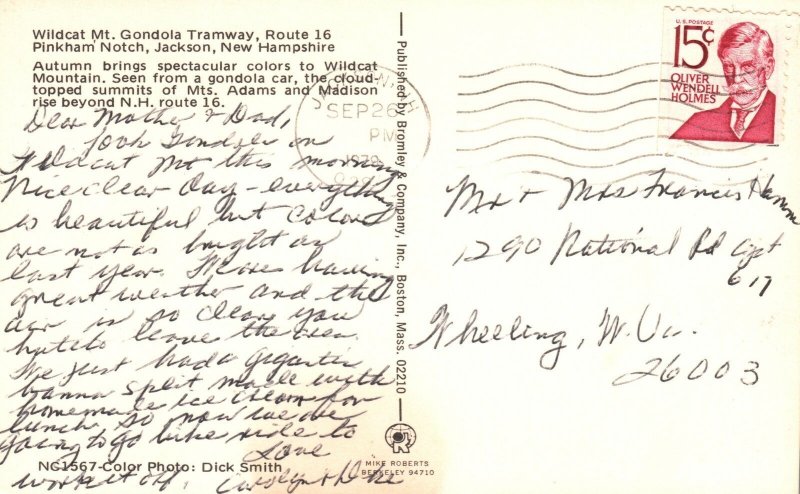 Wildcat Mt. Gondola Tramway, Route 16
Pinkham Notch, Jackson, New Hampshire
Autumn brings spectacular colors to Wildcat
Mountain. Seen from a gondola car, the cloud-
topped summits of Mts. Adams and Madison
rise beyond N.H. route 16.
Dear Mother & Dad,
Took Gondola on
Wildcat Mt this morning
Nice clear day - everything
is beautiful but colors
are not as bright as
last year. having
great weather and the
air is so clear you
hate to leave the area.
We just had a gigantic
banna split made with
homemade ice cream for
lunch. So now we are
going to go bike ride to
work it off.
Love
Carolyn &
NC1567-Color Photo: Dick Smith
Published by Bromley & Company, Inc., Boston, Mass. 02210
MIKE ROBERTS
BERKELEY 94710
N.H.
SEP 26
PM
1979
U.S. POSTAGE
15¢
OLIVER
WENDELL
HOLMES
Mr + Mrs Francis
1290 National Rd Apt
617
Wheeling, W. Va.
26003